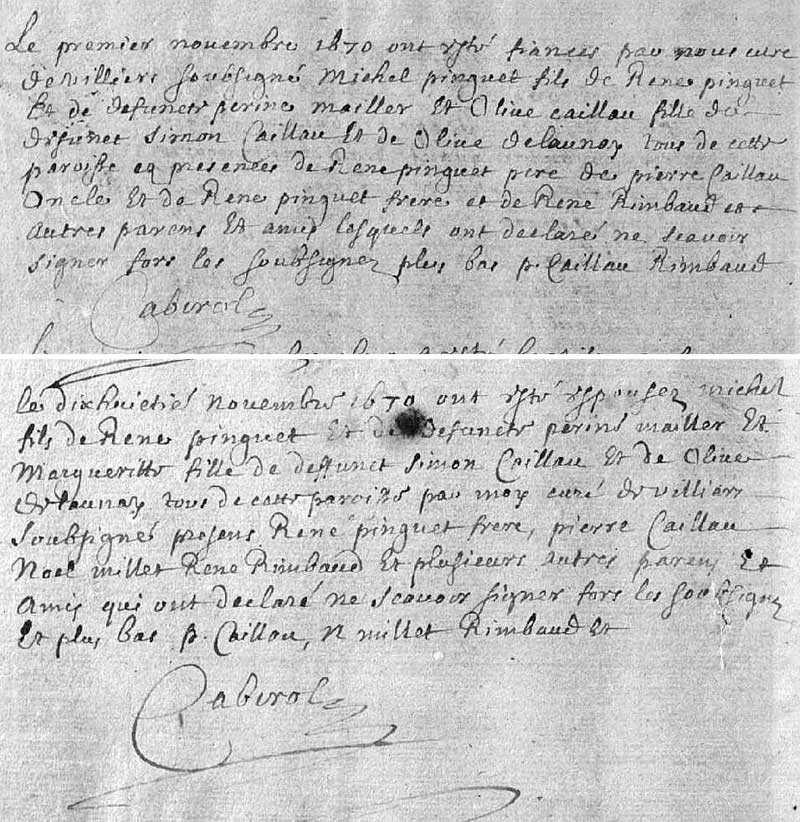 Le premier novembre 1670 ont ysté fiances par nous curé
de villiers soubsigné Michel pinguet fils de Rene pinguet
Et de defuncte perine mailler Et Olive caillau fille de
deffunct Simon Caillau Et de Olive delaunay tous de cette
paroisse en presences de Rene pinguet pere de pierre Caillau
Oncle Et de Rene pinguet frere et de Rene Rimbaud et
autres parens Et amis lesquels ont declaré ne scavoir
signer fors les soubsignez plus bas p. Caillau Rimbaud
Cabirol
le dixhuictié novembre 1670 ont ysté yspousez michel
fils de Rene pinguet Et de defuncte perine mailler Et
Margueritte fille de deffunct Simon Caillau Et de Olive
delaunay tous de cette paroisse par moy curé de villiers
soubsigné presens René pinguet frere, pierre Caillau
Noel millet Rene Rimbaud Et plusieurs autres parens Et
amis qui ont declaré ne scavoir signer fors les soubsignez
Et plus bas p. Caillau, N millet Rimbaud Et
Cabirol